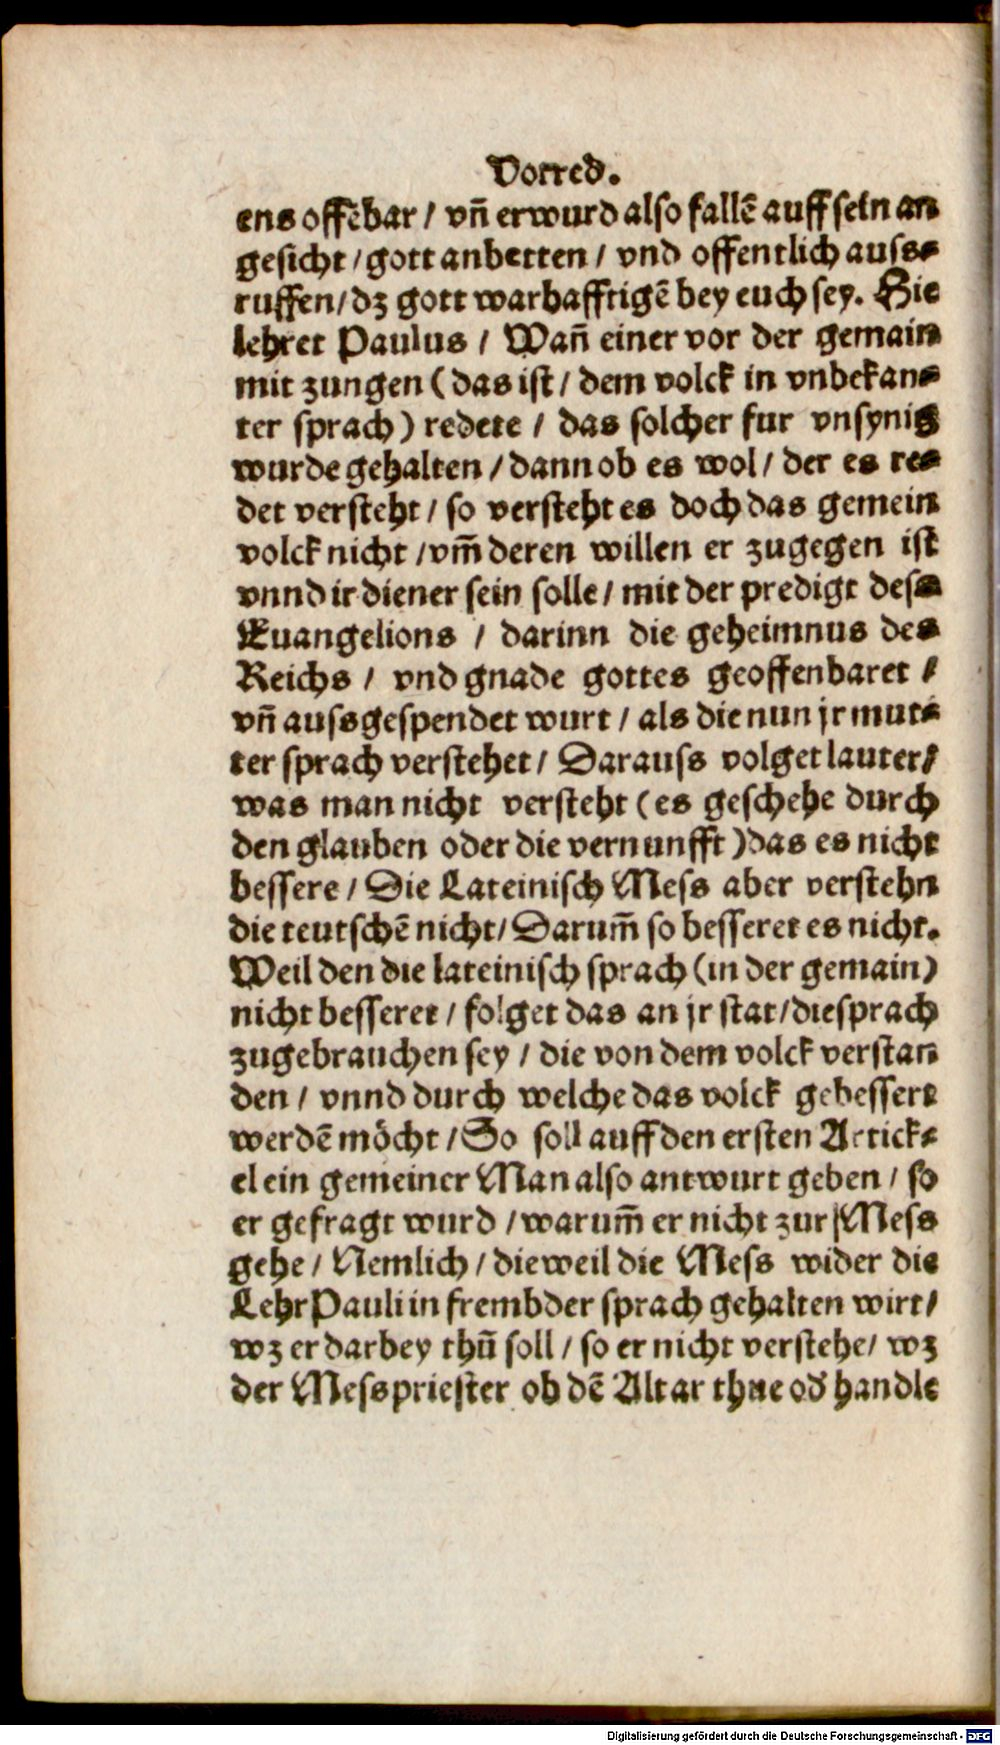 Vorred.
ens offēbar / vñ er wurd also fallē auff sein an
gesicht / gott anbetten / vnd offentlich auss-
ruffen / dz gott warhafftigē bey euch sey. Hie
lehret Paulus / Wañ einer vor der gemain
mit zungen ( das ist / dem volck in vnbekan-
ter sprach ) redete / das solcher fur vnsynig
wurde gehalten / dann ob es wol / der es re-
det versteht / so versteht es doch das gemein
volck nicht / vm̄ deren willen er zugegen ist
vnnd ir diener sein solle / mit der predigt dess
Euangelions / darinn die geheimnus des
Reichs / vnd gnade gottes geoffenbaret /
vñ aussgespendet wurt / als die nun jr mut-
ter sprach verstehet / Darauss volget lauter /
was man nicht versteht ( es geschehe durch
den glauben oder die vernunfft ) das es nicht
bessere / Die Lateinisch Mess aber verstehn
die teutschē nicht / Darum̄ so besseret es nicht.
Weil den die lateinisch sprach ( in der gemain )
nicht besseret / folget das an jr stat / die sprach
zugebrauchen sey / die von dem volck verstan
den / vnnd durch welche das volck gebessert
werdē möcht / So soll auff den ersten Artick-
el ein gemeiner Man also antwurt geben / so
er gefragt wurd / warum̄ er nicht zur Mess
gehe / Nemlich / dieweil die Mess wider die
Lehr Pauli in frembder sprach gehalten wirt /
wz er darbey thū soll / so er nicht verstehe / wz
der Messpriester ob dē Altar thue od' handle
Digitalisierung gefördert durch die Deutsche Forschungsgemeinschaft - DFG